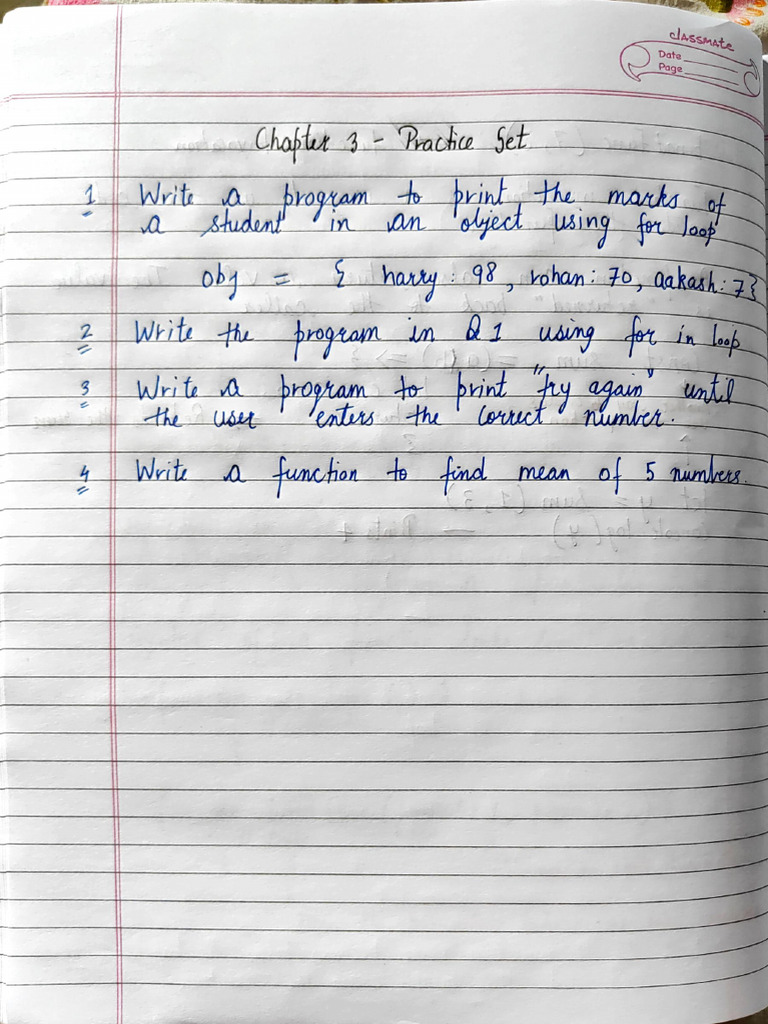 classmate
Date
Page
Chapter 3 - Practice Set
1 Write a program to print the marks of
a student in an object using for loop
obj = { harry : 98, rohan : 70, aakash : 7}
2 Write the program in Q1 using for in loop
3 Write a program to print "try again" until
the user enters the correct number.
4 Write a function to find mean of 5 numbers.